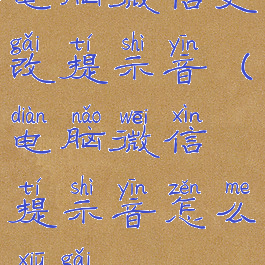 gǎi tí shì yīn
改提示音（
diàn nǎo wēi xìn
电脑微信
tí shì yīn zěn me
提示音怎么
xiū gǎi